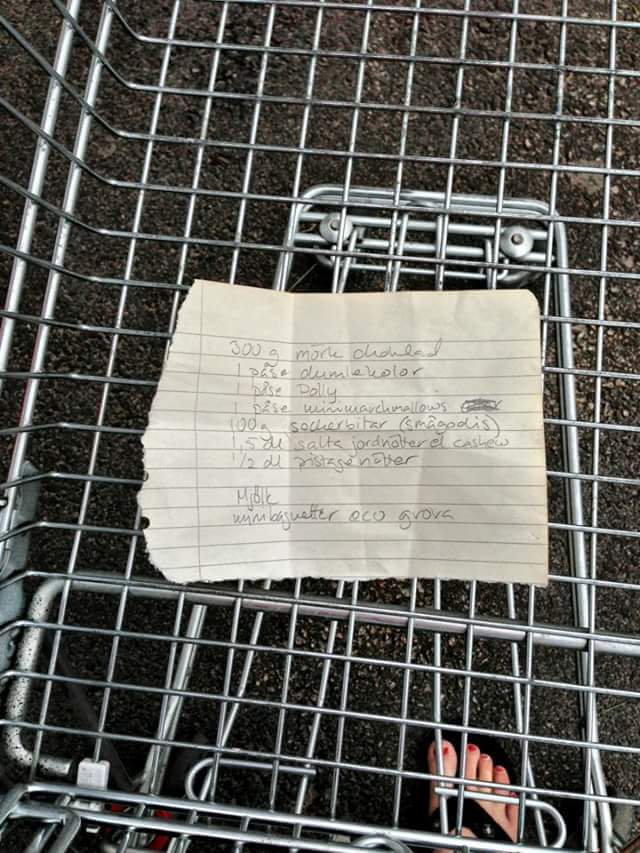 300 g mörk choklad
1 påse dumlekolor
1 påse Polly
1 påse minimarchmallows
100 g sockerbitar (smågodis)
1,5 dl salta jordnötter el cashew
1/2 dl pistagenötter
Mjölk
minibaguetter eco grova